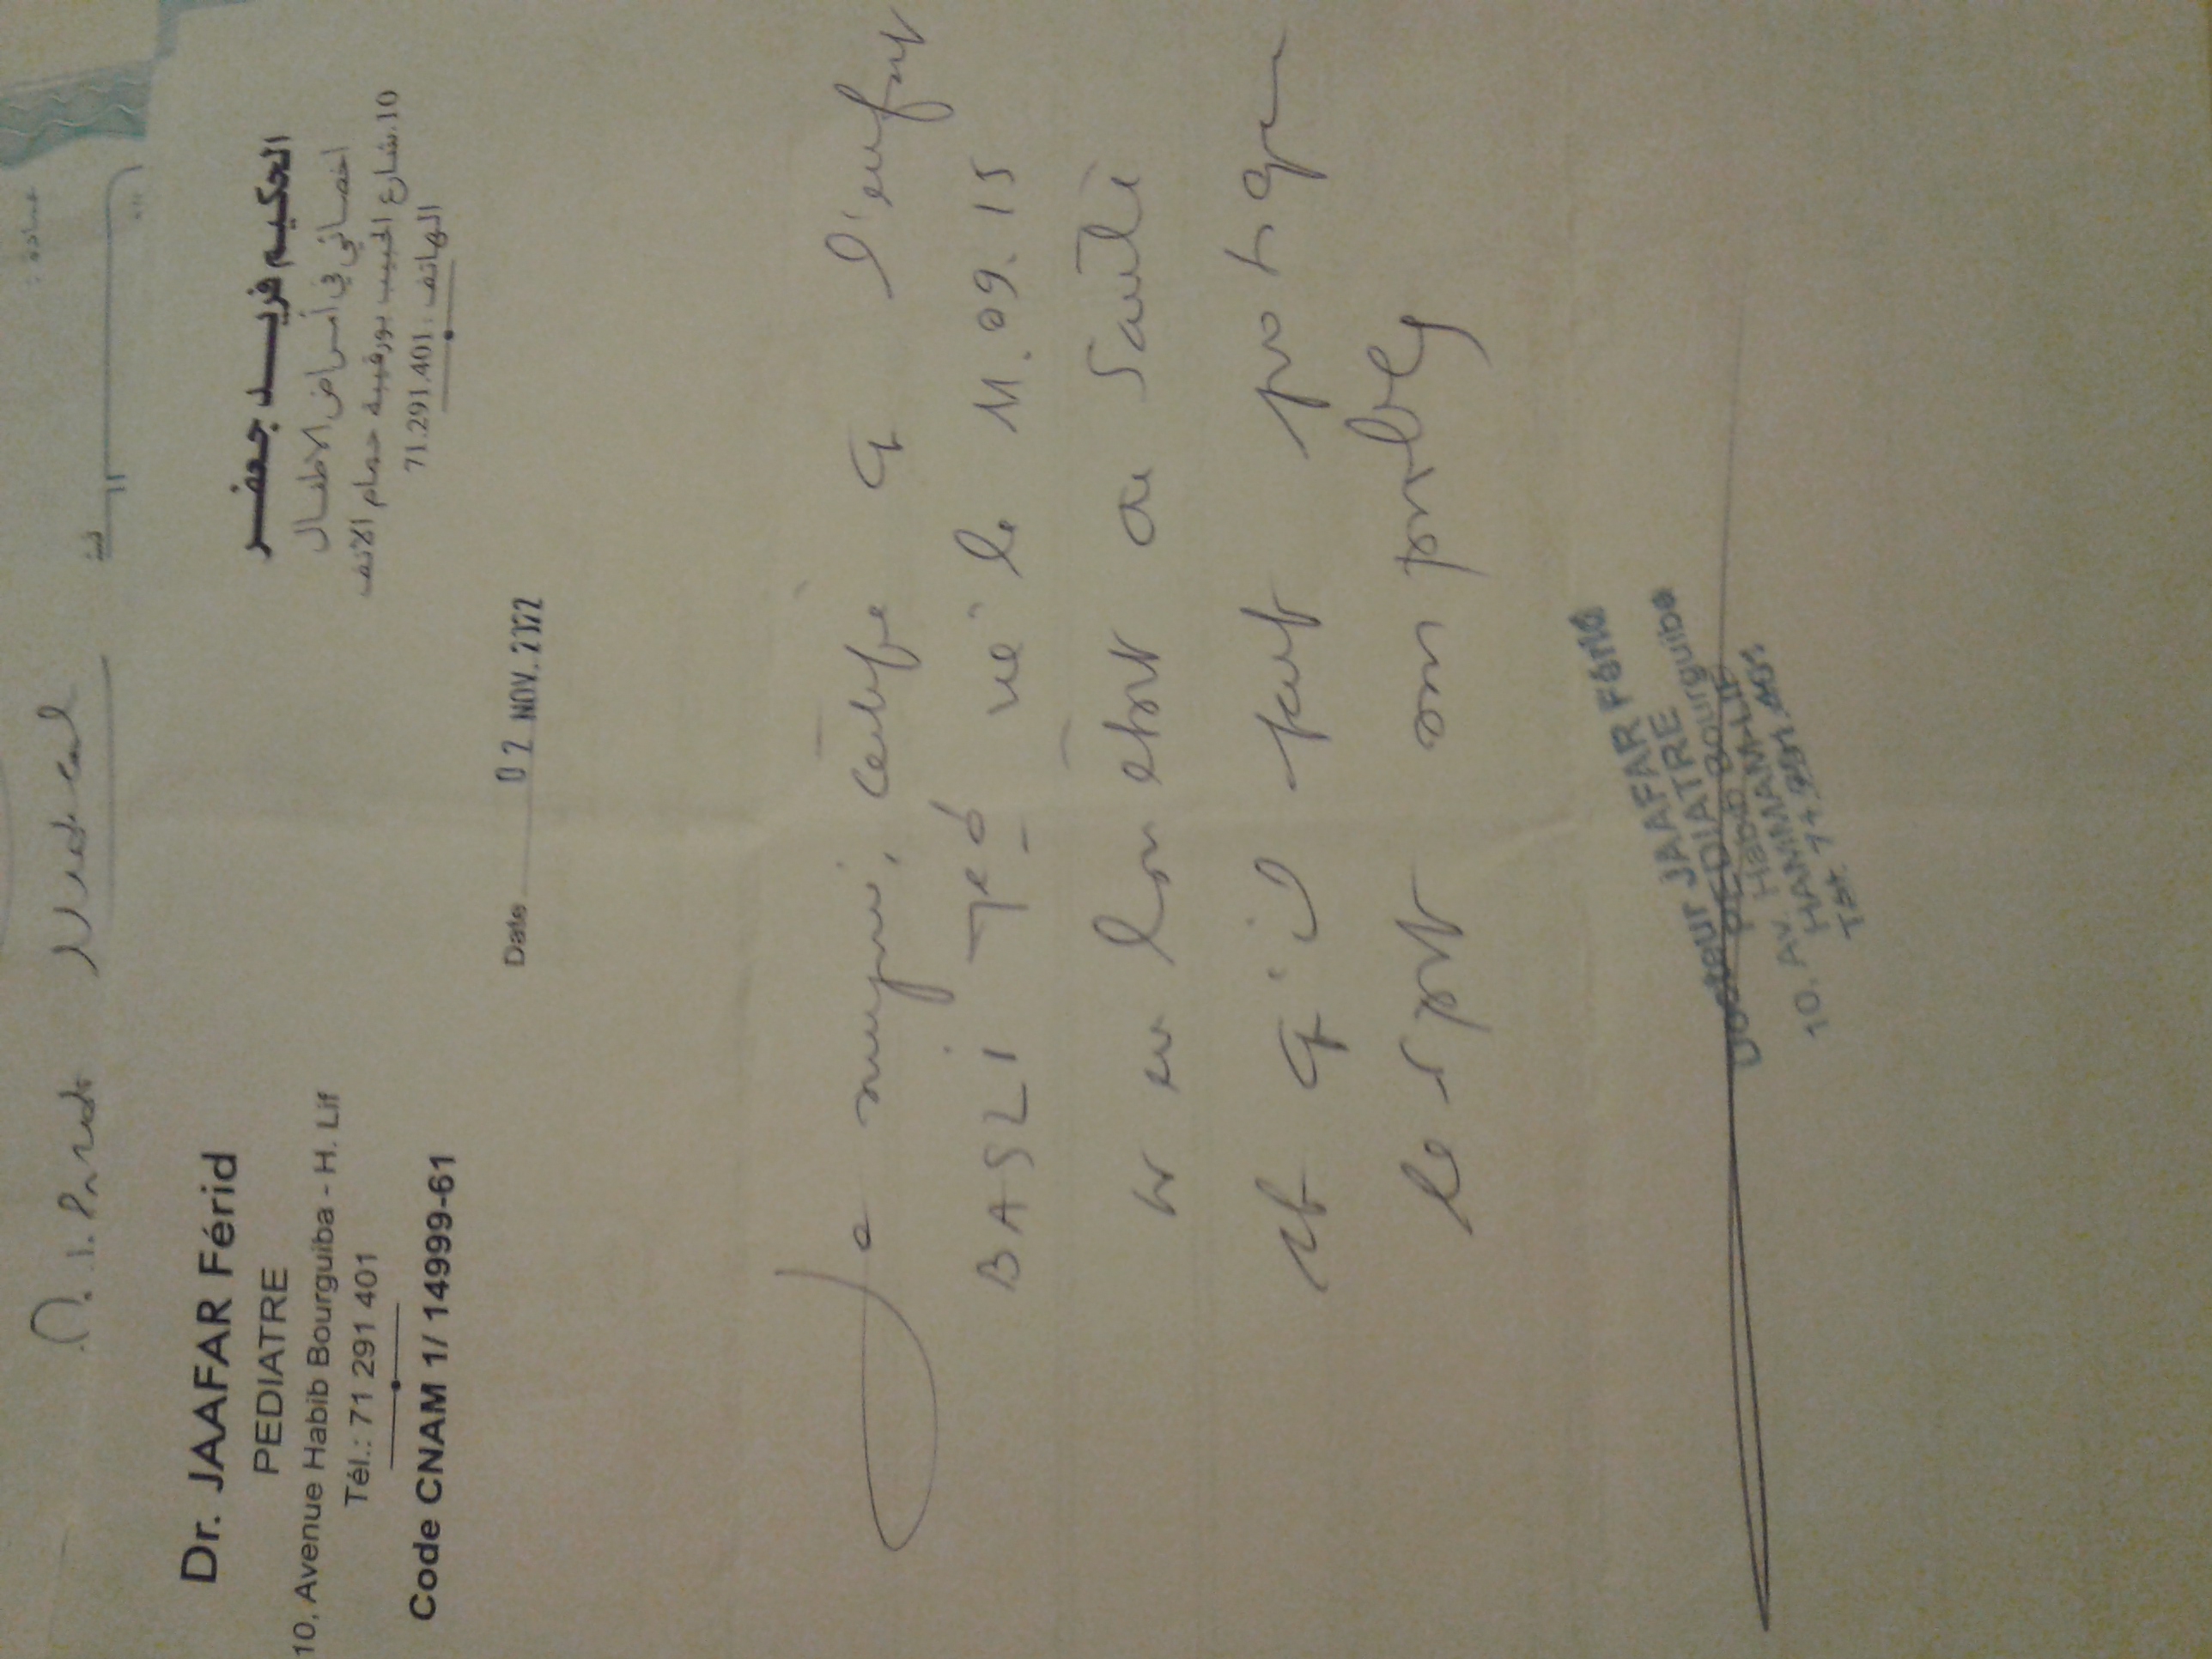 Médical
Dr. JAAFAR Férid
PEDIATRE
10, Avenue Habib Bourguiba - H. Lif
Tél.: 71 291 401
Code CNAM 1/ 14999-61
الحكيم فريد جعفر
اخصائي في أمراض الاطفال
10، شارع الحبيب بورقيبة حمام الانف
الهاتف : 71.291.401
Date 02 NOV. 2022
Je certifie q l'enfant
BASLI né le 11.09.15
est en bon état de Santé
et q'il peut pratiquer
le sport
Docteur JAAFAR Férid
PEDIATRE
10, Av. Habib Bourguiba
HAMMAM-LIF